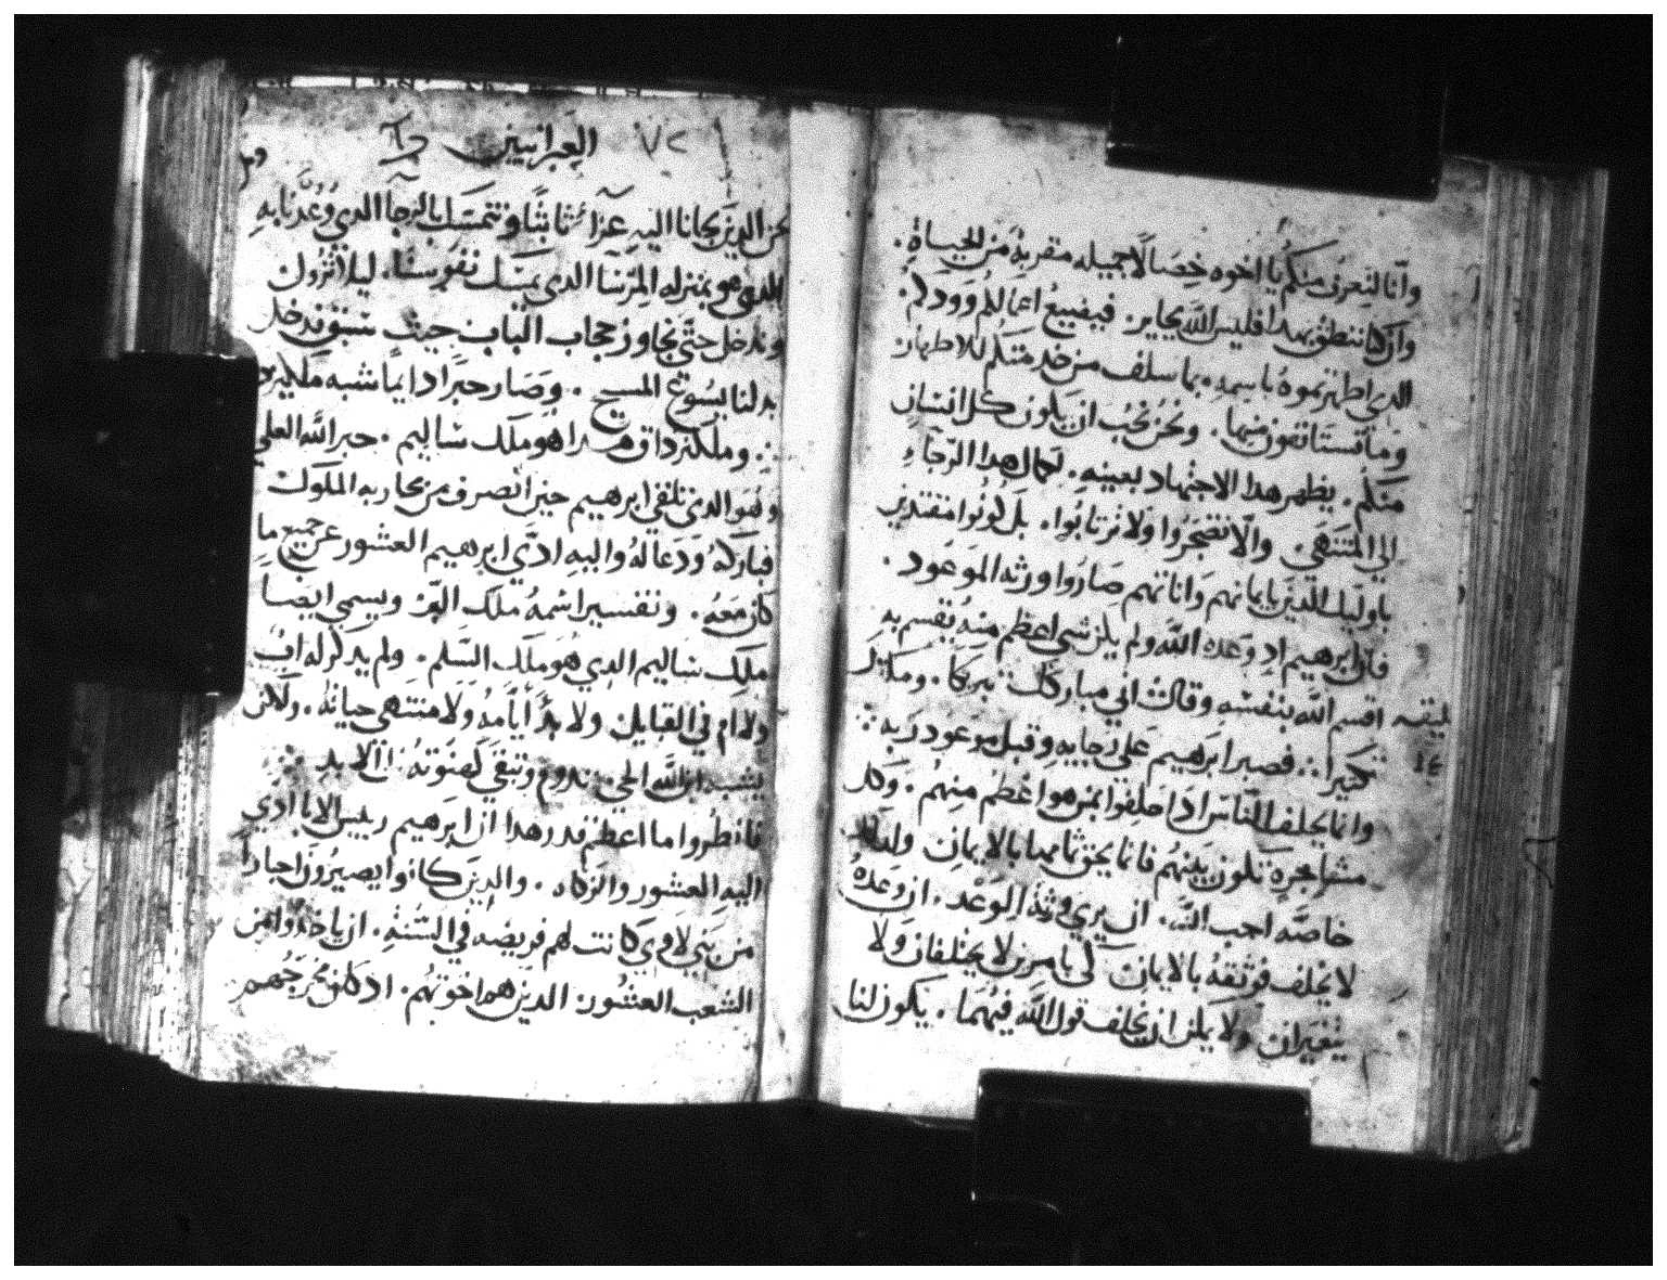 وانا لنعرف منكم يا اخوه خصالاً جميله مقربةً من الحياة.
وان كنا ننطق بهدا فليس الله بجاير. فيضيع اعمالكم وودكم.
الدي اظهرتموه باسمه. بما سلف من خدمتكم للاطهار
وما تستانفون منها. ونحن نحب ان يكون كل انسان
منكم. يظهر هدا الاجتهاد بعينه. لكمال هدا الرجاء
الي المنتهي. والا تضجروا ولا ترتابوا. بل كونوا مقتدين
باوليك الدين بايمانهم واناتهم صاروا ورثه الموعود.
فان ابرهيم اد وعده الله ولم يكن شي اعظم منه يقسم به
اقسم الله بنفسه وقال اني مباركك تبريكا. ومكثرك
تكثيرا ∴ فصبر ابرهيم علي رجايه وقبل موعود ربه ∴
وانما يحلف الناس ادا حلفوا بمن هو اعظم منهم. وكل
مشاجرة تكون بينهم فانما يحق ثباتها بالايمان ولدلك
خاصه احب الله. ان يري ورثة الوعد. ان وعده
لا يخلف فوثقه بالايمان كي بامرين لا يختلفان ولا
يتغيران ولا يمكن ان يخلف قول الله فيهما. يكون لنا
٧٢ العبرانيين
نحن الدين لجانا اليه عزآً ثابتًا ونتمسك بالرجا الدي وعدنا به
الدي هو بمنزله المرسا الدي يمسك نفوسنا. ليلا تزول
وندخل حتي نجاوز حجاب الباب حيث سبق فدخل
بدلنا يسوع المسيح. وصار حبرًا دايمًا شبه ملكيزد
∴ وملكيزداق هدا هو ملك ساليم. حبر الله العلي
وهو الدي تلقي ابرهيم حين انصرف من محاربه الملوك
فباركه ودعا له واليه ادي ابرهيم العشور عن جميع ما
كان معه. وتفسير اسمه ملك البر ويسمي ايضا
ملك ساليم الدي هو ملك السلم. ولم يدكر له اب
ولا ام في القبايل ولا بدُ ايامه ولا منتهي حياته. ولكن
يشبه ابن الله الحي تدوم وتبقي كهنوته الي الابد ∴
فانظروا ما اعظم قدر هدا ان ابرهيم رييس الابا ادي
اليه العشور والزكاه. والدين كانوا يصيرون احبارا
من بني لاوي كانت لهم فريضه في السنة. ان ياخدوا من
الشعب العشور الدين هم اخوتهم. اد كان مخرجهم